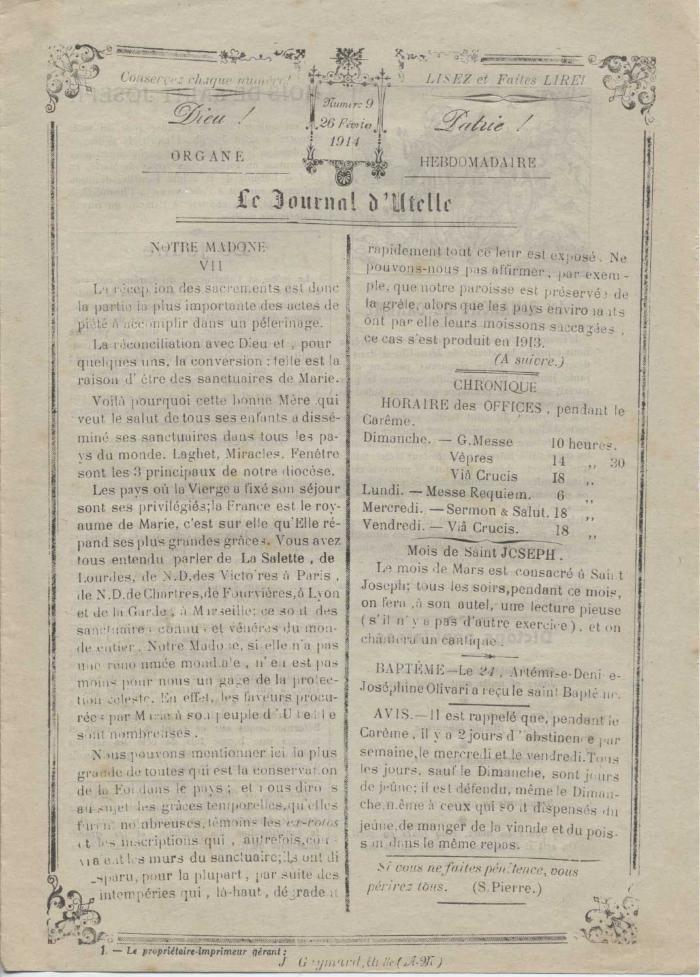 Conservez chaque numéro!
LISEZ et Faites LIRE!
Dieu !
Numéro 9
26 Février
1914
Patrie !
ORGANE
HEBDOMADAIRE
Le Journal d'Utelle
NOTRE MADONE
VII
La récep ion des sacrements est donc
la partie la plus importante des actes de
piété à accomplir dans un pélerinage.
La réconciliation avec Dieu et , pour
quelques uns, la conversion : telle est la
raison d' être des sanctuaires de Marie.
Voilà pourquoi cette bonne Mére qui
veut le salut de tous ses enfants a dissé-
miné ses sanctuaires dans tous les pa-
ys du monde. Laghet, Miracles, Fenêtre
sont les 3 principaux de notre diocèse.
Les pays où la Vierge a fixé son séjour
sont ses privilégiés; la France est le roy-
aume de Marie, c'est sur elle qu'Elle ré-
pand ses plus grandes grâces. Vous avez
tous entendu parler de La Salette , de
Lourdes, de N.D.des Victo'res à Paris ,
de N.D.de Chartres, de Fourvières, à Lyon
et de la Garde , à Marseille; ce so it des
sanctuaires connus et vénérés du mon-
de entier. Notre Madone, si elle n'a pas
une reno mmée mondiale , n'en est pas
moins pour nous un gage de la protec-
tion céleste. En effet, les faveurs procu-
rées par Marie à son peuple d' Utelle
sont nombreuses .
Nous pouvons mentionner ici la plus
grande de toutes qui est la conservation
de la Foi dans le pays ; et nous dirons
au sujet les grâces temporelles, qu'elles
furent nombreuses, témoins les ex-votos
et les inscriptions qui , autrefois, cou-
vraient les murs du sanctuaire; ils ont di
sparu, pour la plupart , par suite des
intempéries qui , là-haut , dégradent
rapidement tout ce leur est exposé. Ne
pouvons-nous pas affirmer , par exem-
ple, que notre paroisse est préservée de
la grêle, alors que les pays environants
ont par elle leurs moissons saccagées ,
ce cas s'est produit en 1913.
(A suivre.)
CHRONIQUE
HORAIRE des OFFICES , pendant le
Carême.
Dimanche. — G.Messe 10 heures.
Vêpres 14 ,, 30
Viâ Crucis 18 ,,
Lundi. — Messe Requiem. 6 ,,
Mercredi. — Sermon & Salut. 18 ,,
Vendredi. — Viâ Crucis. 18 ,,
Mois de Saint JOSEPH .
Le mois de Mars est consacré à Saint
Joseph; tous les soirs, pendant ce mois,
on fera , à son autel, une lecture pieuse
( s'il n'y a pas d'autre exercice) , et on
chantera un cantique .
BAPTÊME — Le 24 , Artémise-Denise-
Joséphine Olivari a reçu le saint Baptême.
AVIS. — Il est rappelé que, pendant le
Carême , il y a 2 jours d' abstinence par
semaine, le mercredi et le vendredi. Tous
les jours, sauf le Dimanche, sont jours
de jeûne; il est défendu, même le Diman-
che, même à ceux qui sont dispensés du
jeûne, de manger de la viande et du pois-
son dans le même repas.
Si vous ne faites pénitence, vous
périrez tous. (S. Pierre.)
1. — Le propriétaire-imprimeur gérant :